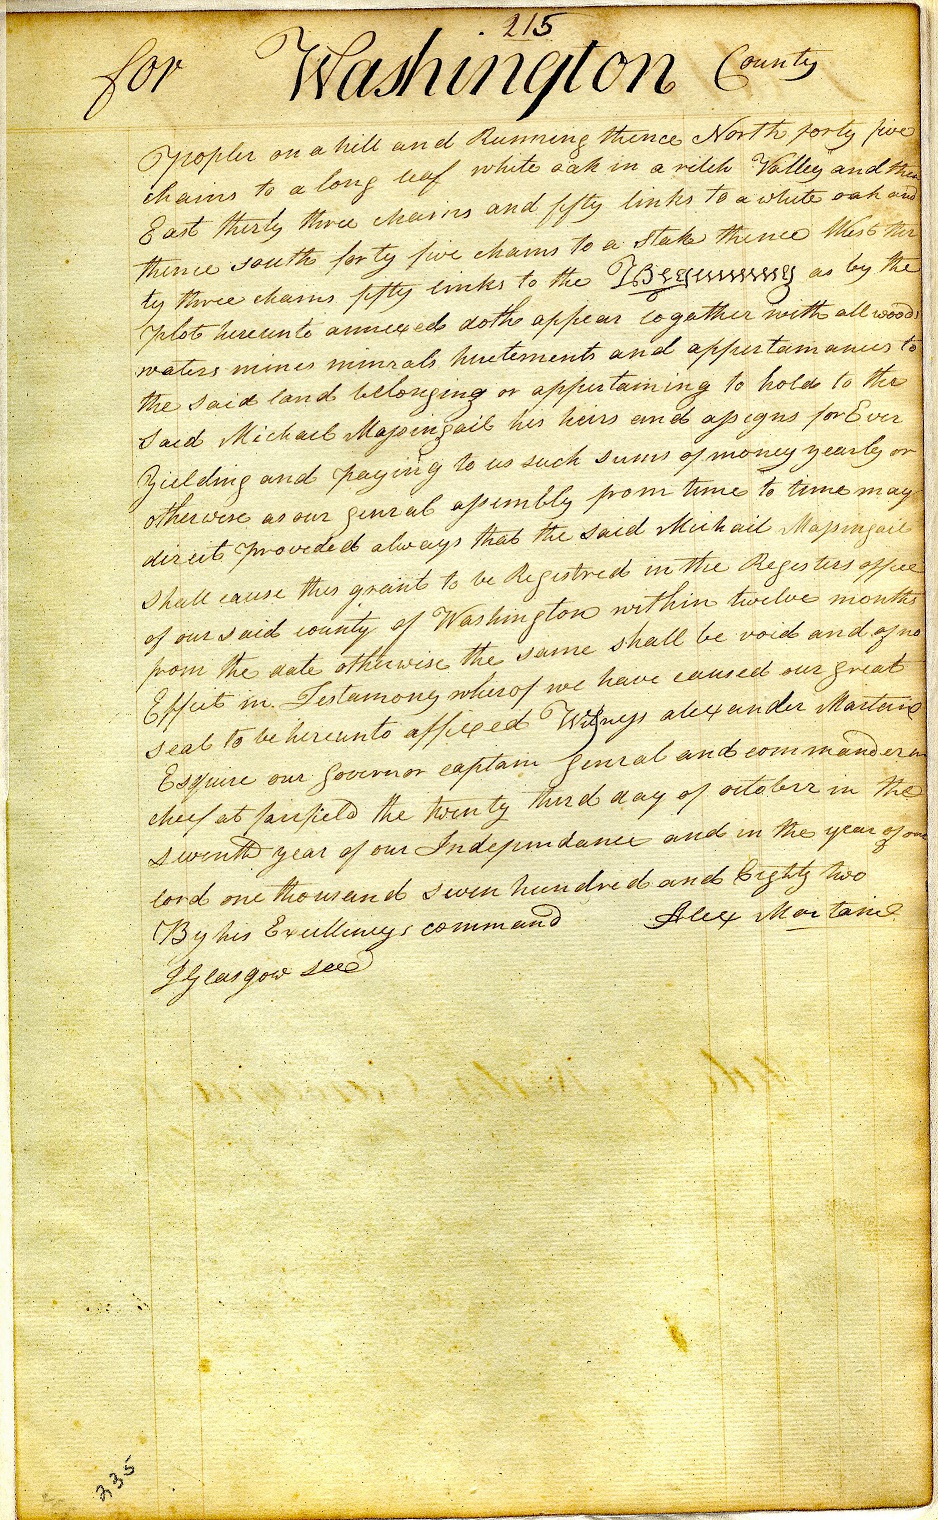 215
for Washington County
Popler on a hill and Running thence North forty five
chains to a long leaf white oak in a ritch Valley and then
East therty three chains and fifty links to a white oak and
thence south forty five chains to a stake thence West thir
ty three chains fifty links to the Beginning as by the
Plot hereunto annexed doth appear togather with all woods
waters mines minrals hiretements and appertanances to
the said land belonging or appertaining to hold to the
said Michael Massingail his heirs and assigns for Ever
Yielding and paying to us such sums of money yearly or
otherwise as our genral assembly from time to time may
direct provided always that the said Michail Massingail
shall cause this grant to be Registred in the Registers office
of our said county of Washington within twelve months
from the date otherwise the same shall be void and of no
Effect in Testamony wherof we have caused our great
seal to be hereunto affixed Witness alexander Martain
Esquire our governor captain genral and commander in
cheef at fairfield the twenty third day of october in the
seventh year of our Independance and in the year of our
lord one thousand seven hundred and Eighty two
By his Excellencys command Alex Martain
J Glasgow sec
335